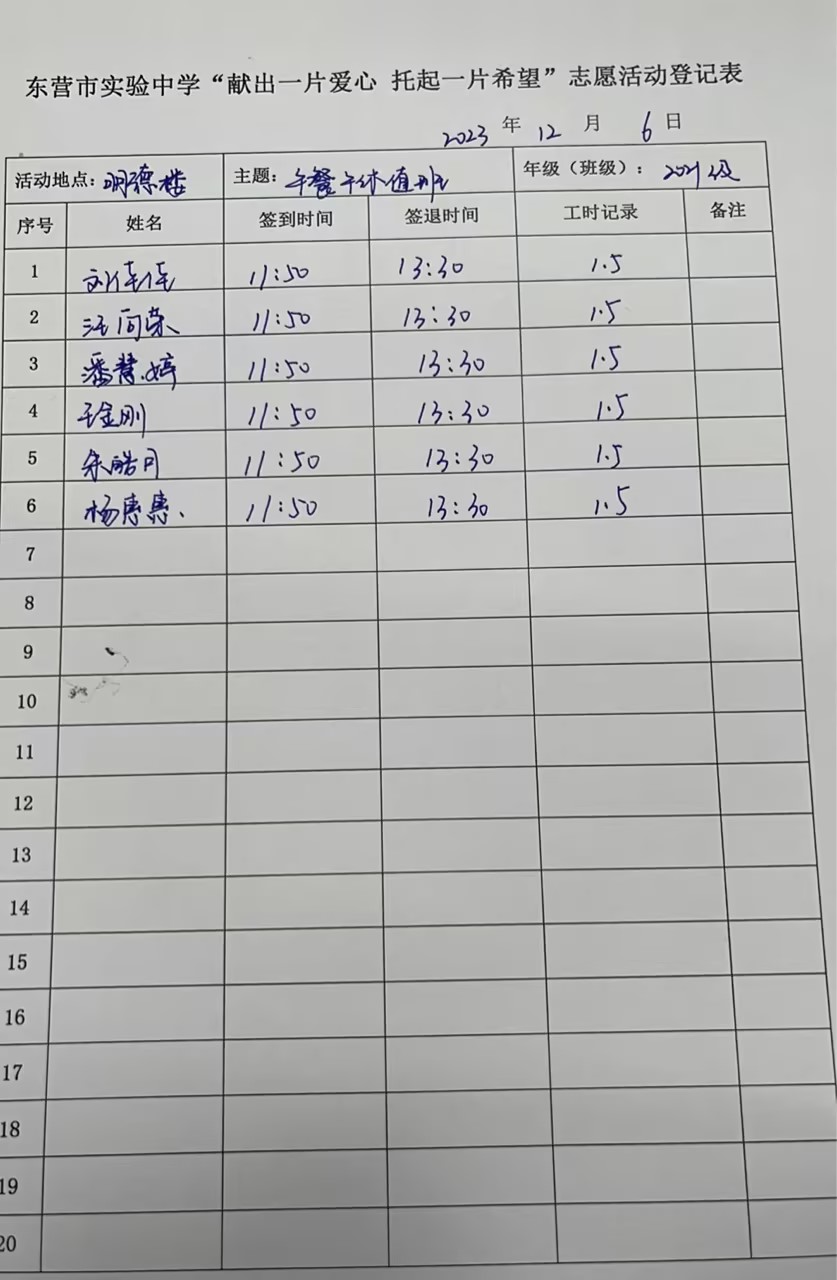 东营市实验中学“献出一片爱心 托起一片希望”志愿活动登记表
2023 年 12 月 6 日
活动地点：明德楼 主题：午餐午休值班 年级（班级）：2021级
序号 姓名 签到时间 签退时间 工时记录 备注
1 刘佳佳 11:50 13:30 1.5
2 汪向荣 11:50 13:30 1.5
3 潘慧婷 11:50 13:30 1.5
4 王金刚 11:50 13:30 1.5
5 朱皓月 11:50 13:30 1.5
6 杨惠惠、 11:50 13:30 1.5
7
8
9
10
11
12
13
14
15
16
17
18
19
20